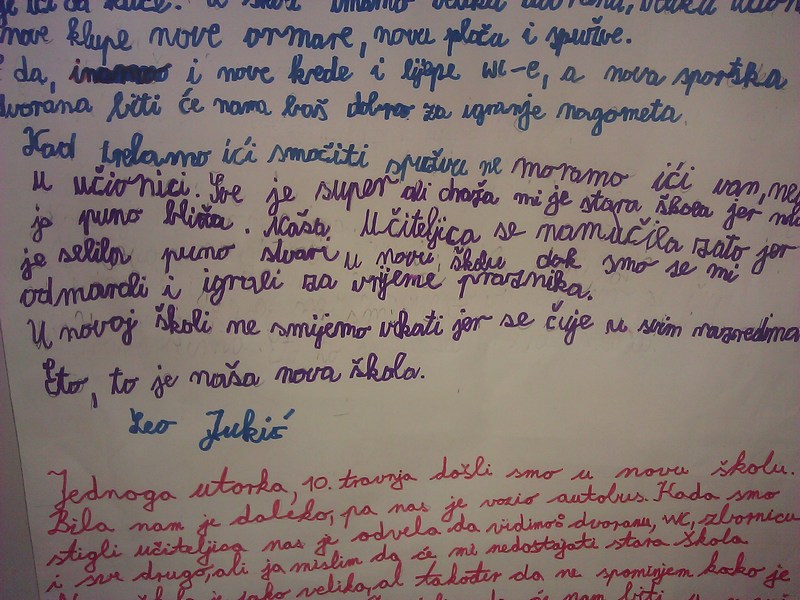 je ići od kuće. U školi imamo veliku dvoranu, veliku
nove klupe nove ormare, novu ploču i spužve.
da, i nove krede i lijepe wc-e, a nova sportska
dvorana biti će nama baš dobra za igranje nagometa.
Kad trebamo ići smočiti spužvu ne moramo ići van,
u učionici. Sve je super ali draža mi je stara škola jer
je puno bliža. Naša Učiteljica se namučila zato jer
je selila puno stvari u novu školu dok smo se mi
odmarali i igrali za vrijeme praznika.
U novoj školi ne smijemo vikati jer se čuje u svim razredima
Eto, to je naša nova škola.
Leo Jukić
Jednoga utorka, 10. travnja došli smo u novu školu.
Bila nam je daleko, pa nas je vozio autobus. Kada smo
stigli učiteljica nas je odvela da vidimo dvoranu, WC, zbornicu
i sve drugo, ali ja mislim da će mi nedostajati stara škola
je jako velika, al također da ne spominjem kako je
će nam biti u